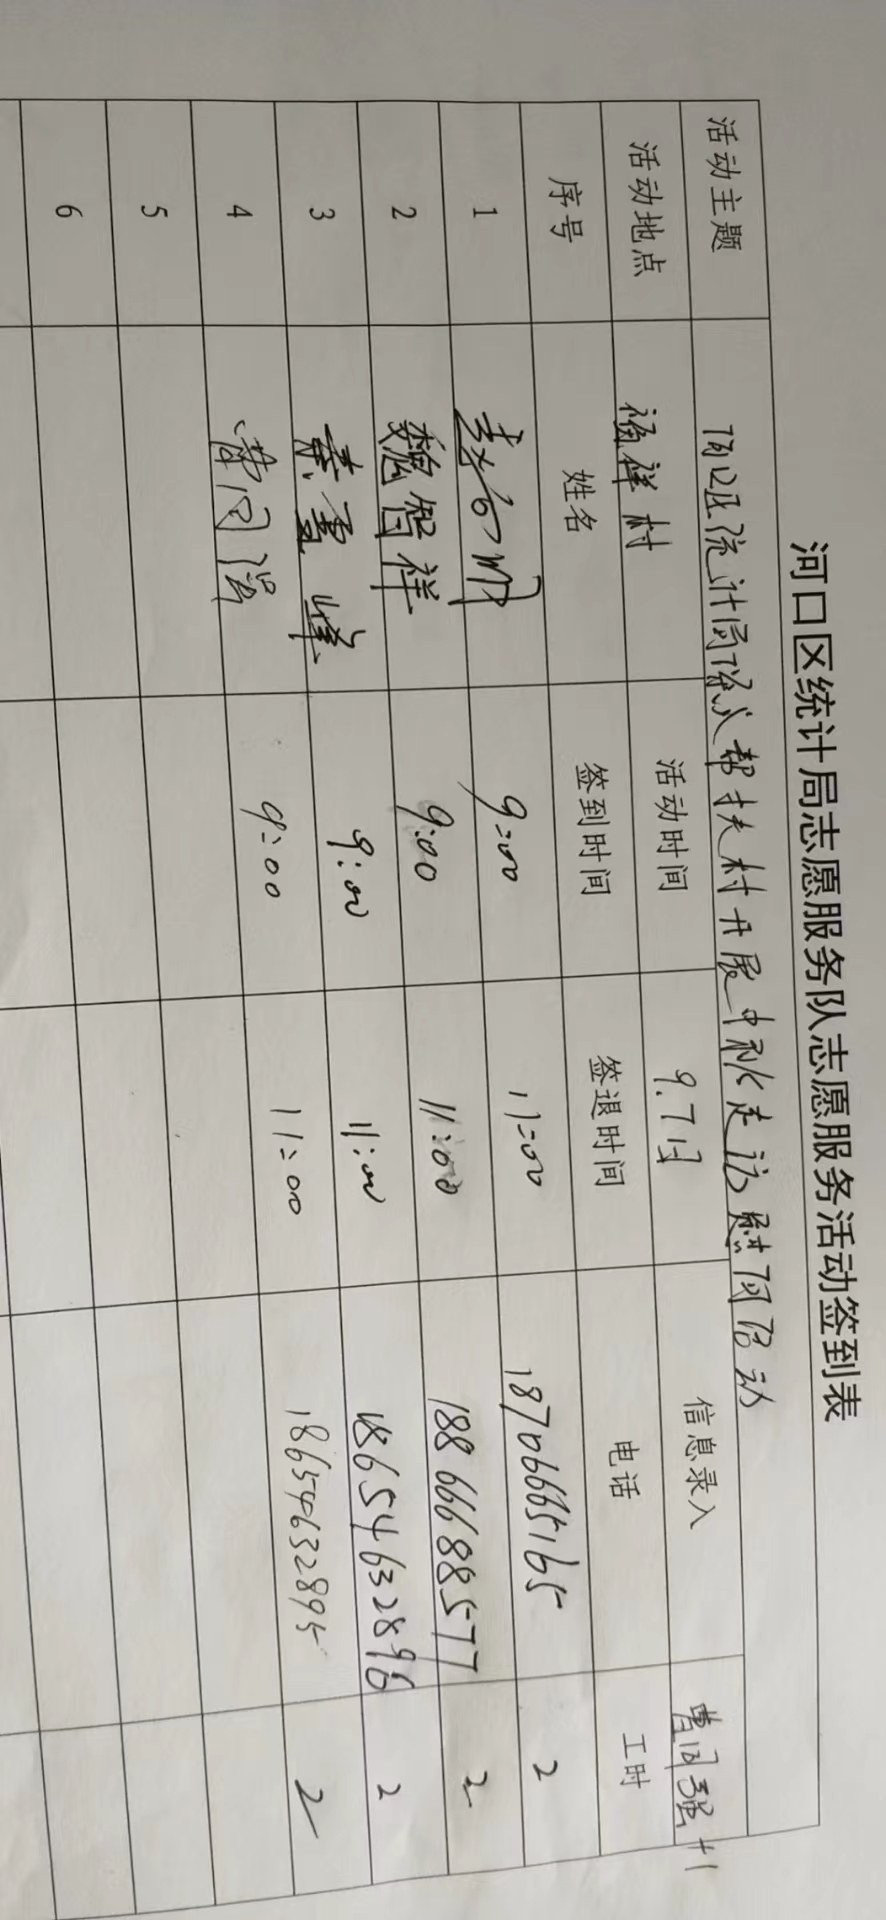 河口区统计局志愿服务队志愿服务活动签到表
活动主题 河口区统计局深入帮扶村开展中秋走访慰问活动
活动地点 福祥村 活动时间 9.7日 信息录入 曹同强 +1
序号 姓名 签到时间 签退时间 电话 工时
1 9:00 11:00 18706665165 2
2 魏智祥 9:00 11:00 18866688577 2
3 秦雪峰 9:00 11:00 18654632896 2
4 曹同强 9:00 11:00 18654632895 2
5
6